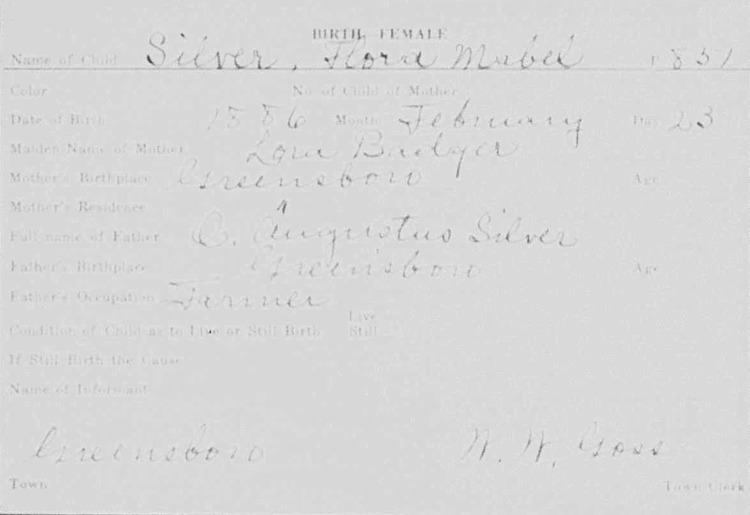 BIRTH, FEMALE
Name of Child Silver, Flora Mabel 1851
Color No. of Child of Mother
Date of Birth 1886 Month February Day 23
Maiden Name of Mother Lora Badger
Mother's Birthplace Greensboro Age
Mother's Residence
Full name of Father C. Augustus Silver
Father's Birthplace Greensboro Age
Father's Occupation Farmer
Live
Condition of Child as to Live or Still Birth Still
If Still Birth the Cause
Name of Informant
Greensboro W. W. Goss
Town Town Clerk